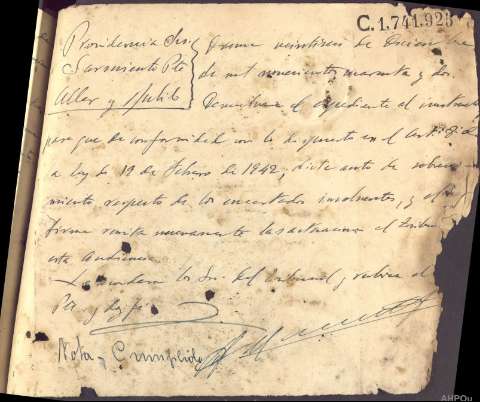 C.1.741.923
Providencia Sres
Sarmiento Pte
Aller y
veintitres de Diciembre
de mil novecientos cuarenta y dos.
Devuélvase el expediente al
para que de conformidad con lo dispuesto en el
a Ley de 19 de Febrero de 1942, dicte auto de
miento respecto de los encartados insolventes, y
firme remita nuevamente las actuaciones al
esta Audiencia.
Lo acordaron los Sres del tribunal, rubrica el
Pte y doy fé
Nota - Cumplido
AHPOu